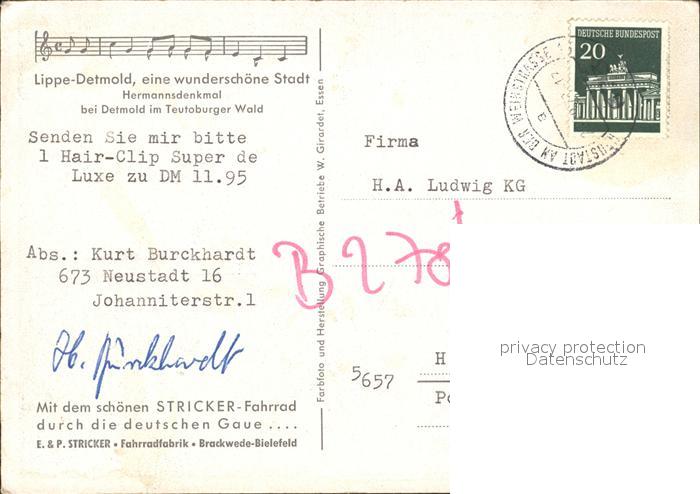 Lippe-Detmold, eine wunderschöne Stadt
Hermannsdenkmal
bei Detmold im Teutoburger Wald
Senden Sie mir bitte
1 Hair-Clip Super de
Luxe zu DM 11.95
Abs.: Kurt Burckhardt
673 Neustadt 16
Johanniterstr.1
Mit dem schönen STRICKER-Fahrrad
durch die deutschen Gaue ....
E. & P. STRICKER • Fahrradfabrik • Brackwede-Bielefeld
Farbfoto und Herstellung Graphische Betriebe W. Girardet, Essen
DEUTSCHE BUNDESPOST
20
AN DER WEINSTRASSE
a
Firma
H.A. Ludwig KG
B 270
5657
H
Po
privacy protection
Datenschutz